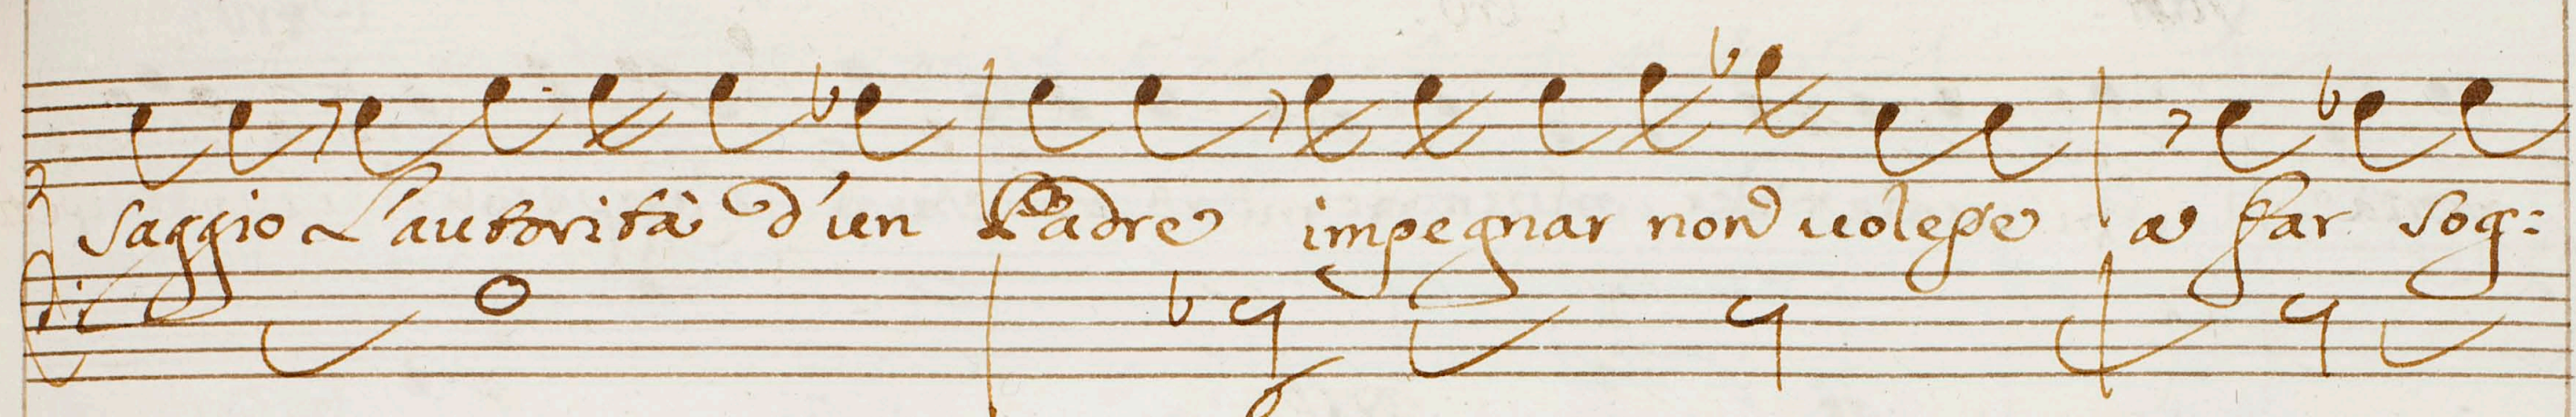 saggio L'autorità d'un Padre impegnar non uolesse a far sog: